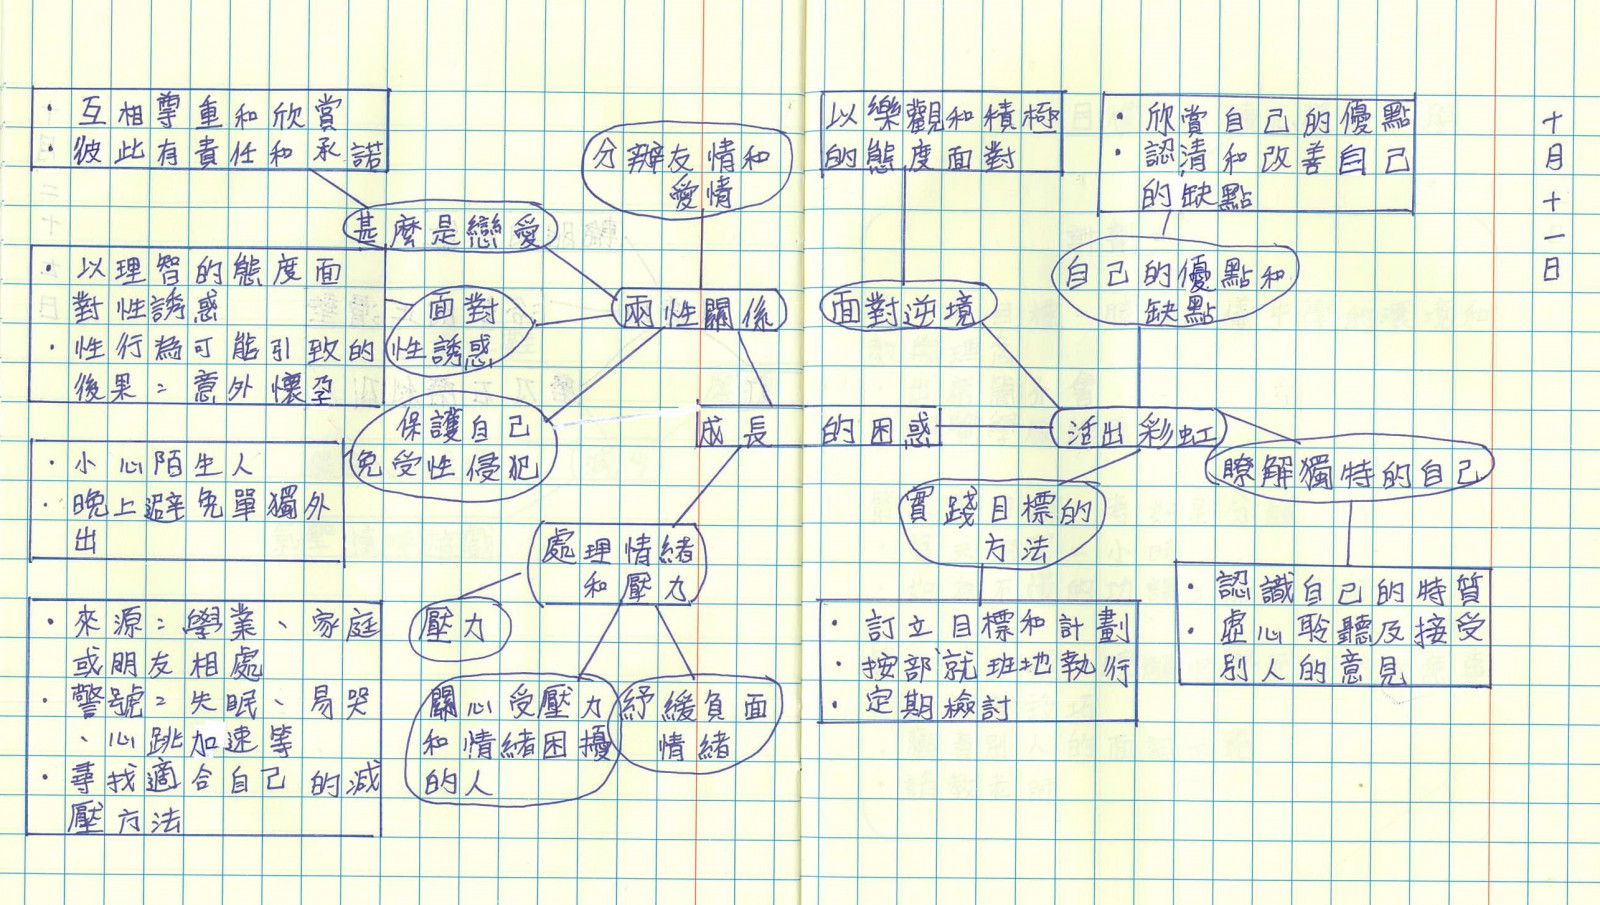 十月十一日
・互相尊重和欣賞
・彼此有責任和承諾
甚麼是戀愛
分辦友情和
愛情
・以理智的態度面
對性誘惑
・性行為可能引致的
後果：意外懷孕
面對
性誘惑
兩性關係
保護自己
免受性侵犯
・小心陌生人
・晚上避免單獨外
出
成長的困惑
處理情緒
和壓力
壓力
・來源：學業、家庭
或朋友相處
・警號：失眠、易哭
、心跳加速等
・尋找適合自己的減
壓方法
關心受壓力
和情緒困擾
的人
紓緩負面
情緒
以樂觀和積極
的態度面對
面對逆境
・欣賞自己的優點
・認清和改善自己
的缺點
自己的優點和
缺點
活出彩虹
瞭解獨特的自己
・認識自己的特質
・虛心聆聽及接受
別人的意見
實踐目標的
方法
・訂立目標和計劃
・按部就班地執行
・定期檢討